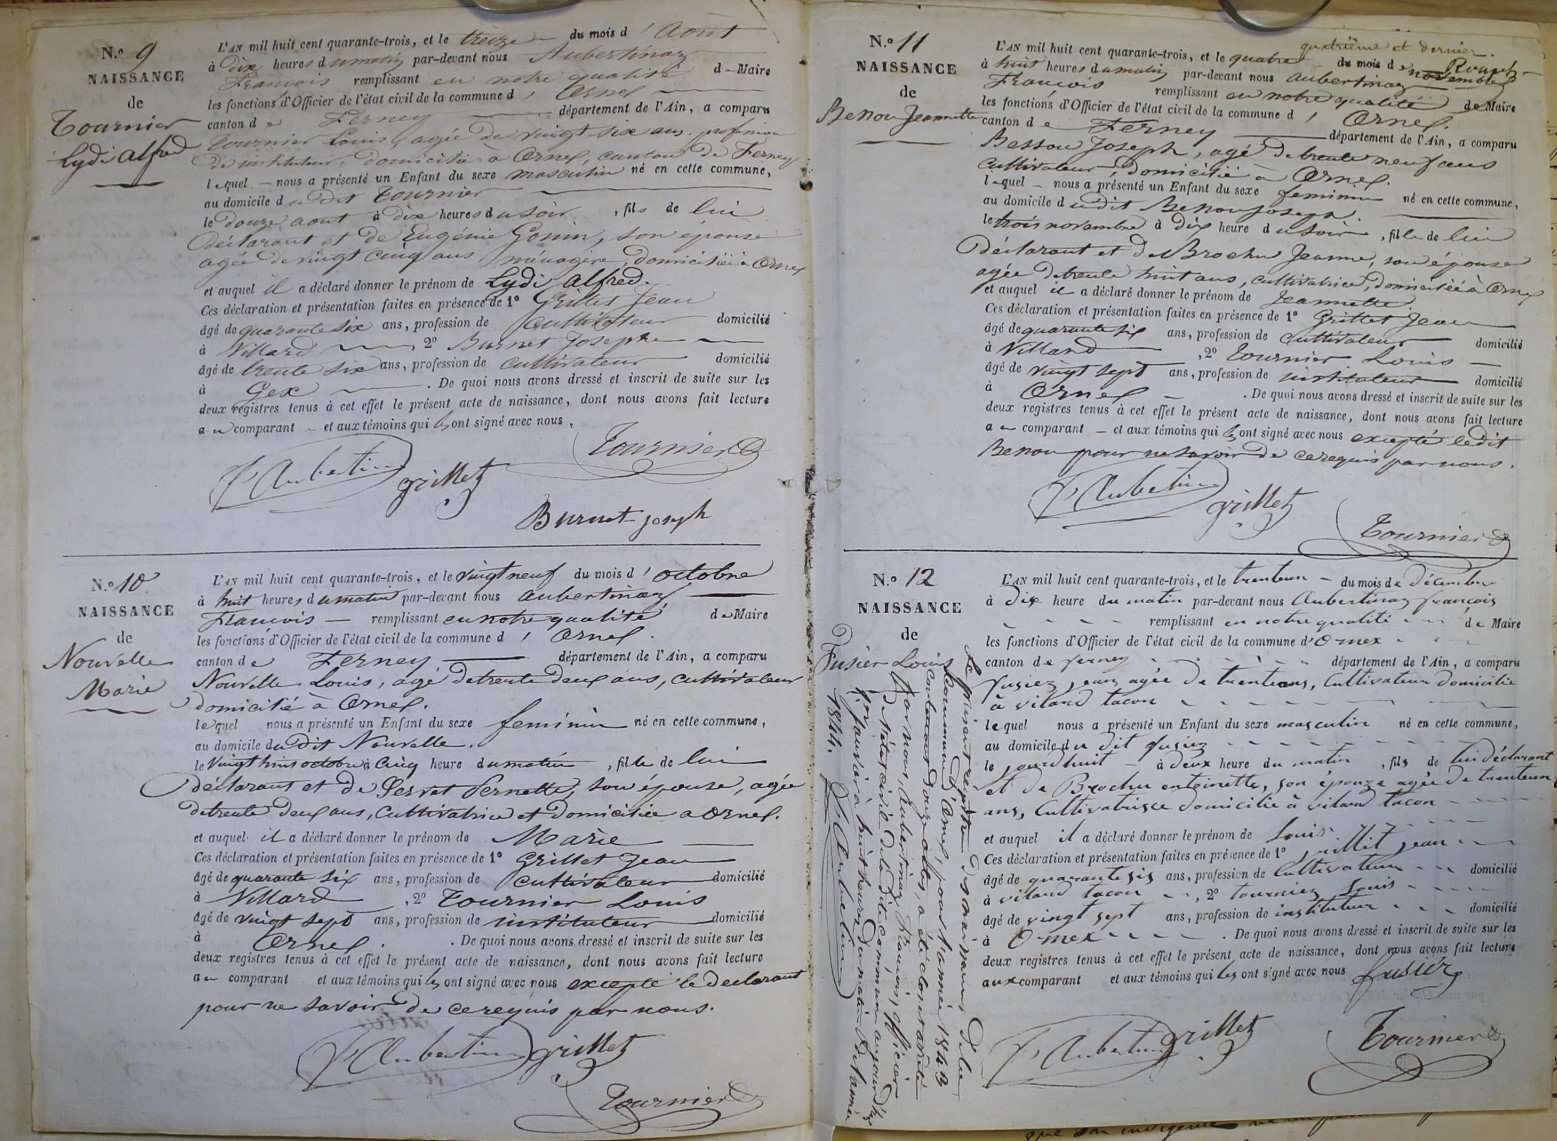 N.o 9
NAISSANCE
de
Tournier
Lydi Alfred
L'AN mil huit cent quarante-trois, et le treize du mois d'Août
à dix heures du matin par-devant nous Aubertinaz
François remplissant en notre qualité de Maire
les fonctions d'Officier de l'état civil de la commune d'Ornex
canton de Ferney département de l'Ain, a comparu
Tournier Louis, agé de vingt six ans, profession
de instituteur, domicilié à Ornex, canton de Ferney
lequel nous a présenté un Enfant du sexe masculin né en cette commune,
au domicile du dit Tournier
le douze aout à dix heures du soir, fils de lui
déclarant et de Eugénie Gonin, son épouse
agée de vingt cinq ans ménagère, domiciliée à Ornex
et auquel il a déclaré donner le prénom de Lydi Alfred.
Ces déclaration et présentation faites en présence de 1° Grillet Jean
âgé de quarante six ans, profession de cultivateur domicilié
à Villard, 2° Burnet Joseph
âgé de trente six ans, profession de cultivateur domicilié
à Gex. De quoi nous avons dressé et inscrit de suite sur les
deux registres tenus à cet effet le présent acte de naissance, dont nous avons fait lecture
au comparant et aux témoins qui les ont signé avec nous.
F. Aubertinaz grillet Tournier
Burnet joseph
N.o 10
NAISSANCE
de
Nouvelle
Marie
L'AN mil huit cent quarante-trois, et le vingt neuf du mois d'octobre
à huit heures du matin par-devant nous Aubertinaz
François remplissant en notre qualité de Maire
les fonctions d'Officier de l'état civil de la commune d'Ornex.
canton de Ferney département de l'Ain, a comparu
Nouvelle Louis, agé de trente deux ans, cultivateur
domicilié à Ornex.
lequel nous a présenté un Enfant du sexe feminin né en cette commune,
au domicile du dit Nouvelle.
le vingt huit octobre à cinq heure du matin, fille de lui
déclarant et de Pernette, son épouse, agée
de trente deux ans, cultivatrice et domiciliée a Ornex.
et auquel il a déclaré donner le prénom de Marie
Ces déclaration et présentation faites en présence de 1° Grillet Jean
âgé de quarante six ans, profession de cultivateur domicilié
à Villard, 2° Tournier Louis
âgé de vingt sept ans, profession de instituteur domicilié
à Ornex. De quoi nous avons dressé et inscrit de suite sur les
deux registres tenus à cet effet le présent acte de naissance, dont nous avons fait lecture
au comparant et aux témoins qui les ont signé avec nous excepté le declarant
pour ne savoir de ce requis par nous.
F. Aubertinaz grillet
Tournier
N.o 11
NAISSANCE
de
Besson Jeannette
quatrième et dernier.
L'AN mil huit cent quarante-trois, et le quatre du mois de novembre
à huit heures du matin par-devant nous Aubertinaz
François remplissant en notre qualité de Maire
les fonctions d'Officier de l'état civil de la commune d'Ornex.
canton de Ferney département de l'Ain, a comparu
Besson Joseph, agé de trente neuf ans
cultivateur, domicilié à Ornex.
lequel nous a présenté un Enfant du sexe feminin né en cette commune,
au domicile du dit Besson Joseph.
le trois novembre à dix heure du soir, fille de lui
déclarant et de Brochu Jeanne, son épouse
agée de trente huit ans, cultivatrice, domiciliée à Ornex
et auquel il a déclaré donner le prénom de Jeannette
Ces déclaration et présentation faites en présence de 1° Grillet Jean
âgé de quarante six ans, profession de cultivateur domicilié
à Villard, 2° Tournier Louis
âgé de vingt sept ans, profession de instituteur domicilié
à Ornex. De quoi nous avons dressé et inscrit de suite sur les
deux registres tenus à cet effet le présent acte de naissance, dont nous avons fait lecture
au comparant et aux témoins qui les ont signé avec nous excepté le dit
Besson pour ne savoir de ce requis par nous.
F. Aubertinaz grillet
Tournier
N.o 12
NAISSANCE
de
Fusier Louis
L'AN mil huit cent quarante-trois, et le trente un du mois de décembre
à dix heure du matin par-devant nous Aubertinaz françois
remplissant en notre qualité de Maire
les fonctions d'Officier de l'état civil de la commune d'Ornex
canton de ferney département de l'Ain, a comparu
fusiez, jean agée de trente ans, Cultivateur domicilié
à vilard tacon
lequel nous a présenté un Enfant du sexe masculin né en cette commune,
au domicile du dit fusiez
le jourdhuit à deux heure du matin, fils de lui déclarant
et de Brochu antoinette, son épouze agée de trente un
ans, Cultivatrisse domicilié à vilard tacon
et auquel il a déclaré donner le prénom de Louis
Ces déclaration et présentation faites en présence de 1° grillet jean
âgé de quarante six ans, profession de Cultivateur domicilié
à vilard tacon, 2° tournier Louis
âgé de vingt sept ans, profession de instituteur domicilié
à Ornex. De quoi nous avons dressé et inscrit de suite sur les
deux registres tenus à cet effet le présent acte de naissance, dont nous avons fait lecture
aux comparant et aux témoins qui les ont signé avec nous fusier
F. Aubertinaz grillet Tournier
Le présent régistre de naissances, de la
commune d'Ornex, pour l'année 1843
contenant douze actes, a été clos et arrêté
par nous, Aubertinaz François, officier
de l'état civil de la dite commune aujourd'hui
janvier à huit heures du matin de l'année
1844. F. Aubertinaz